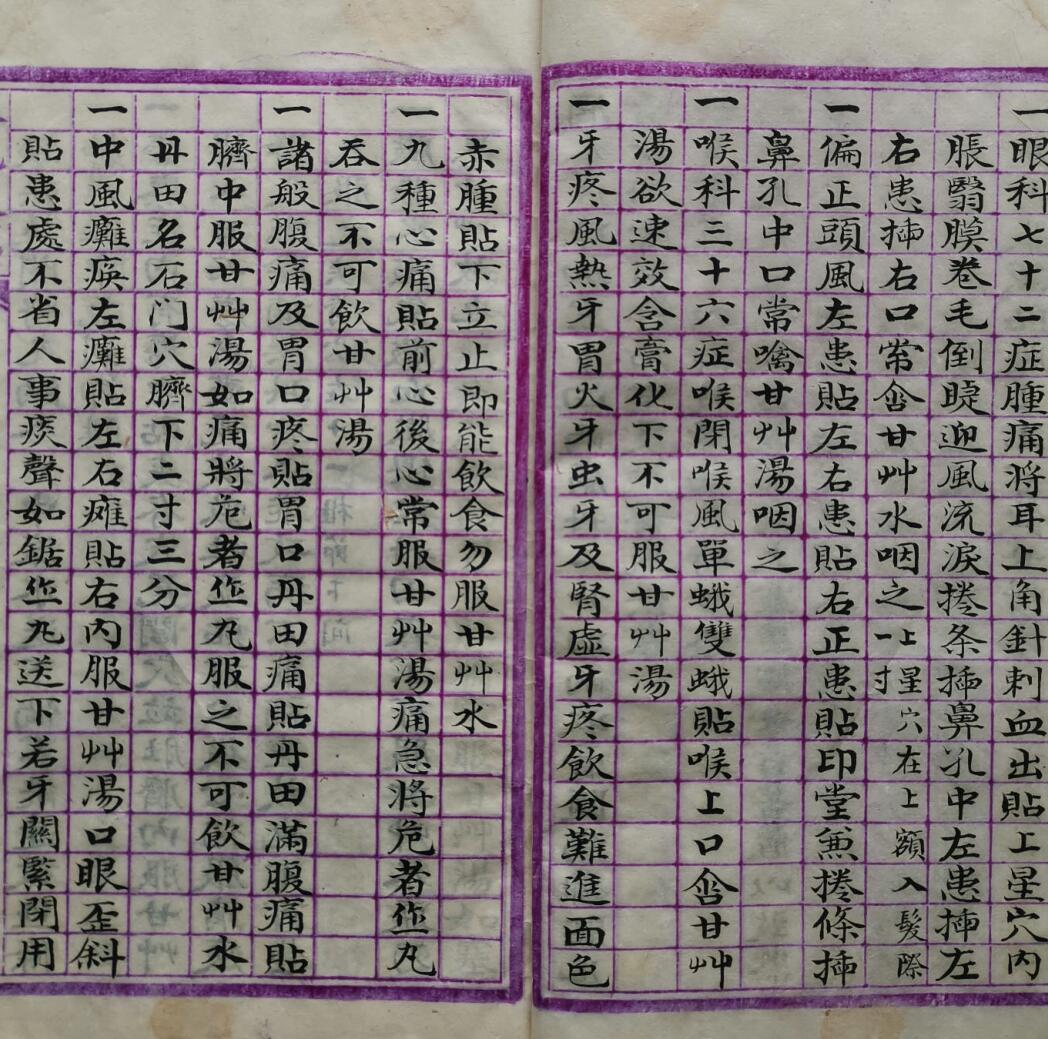 一眼科七十二症腫痛將耳上角針刺血出貼上星穴內
脹翳膜卷毛倒睫迎風流淚捲条揷鼻孔中左患揷左
右患揷右口常含甘艸水咽之上星穴在上額入髮際一寸
一偏正頭風左患貼左右患貼右正患貼印堂兼捲條揷
鼻孔中口常噙甘艸湯咽之
一喉科三十六症喉閉喉風單蛾雙蛾貼喉上口含甘艸
湯欲速效含膏化下不可服甘艸湯
一牙疼風熱牙胃火牙虫牙及腎虛牙疼飲食難進面色
赤腫貼下立止即能飲食勿服甘艸水
一九種心痛貼前心後心常服甘艸湯痛急將危者作丸
吞之不可飲甘艸湯
一諸般腹痛及胃口疼貼胃口丹田痛貼丹田滿腹痛貼
臍中服甘艸湯如痛將危者作丸服之不可飲甘艸水
丹田名石门穴臍下二寸三分
一中風癱瘓左癱貼左右癱貼右內服甘艸湯口眼歪斜
貼患處不省人事痰聲如鋸作丸送下若牙關緊閉用